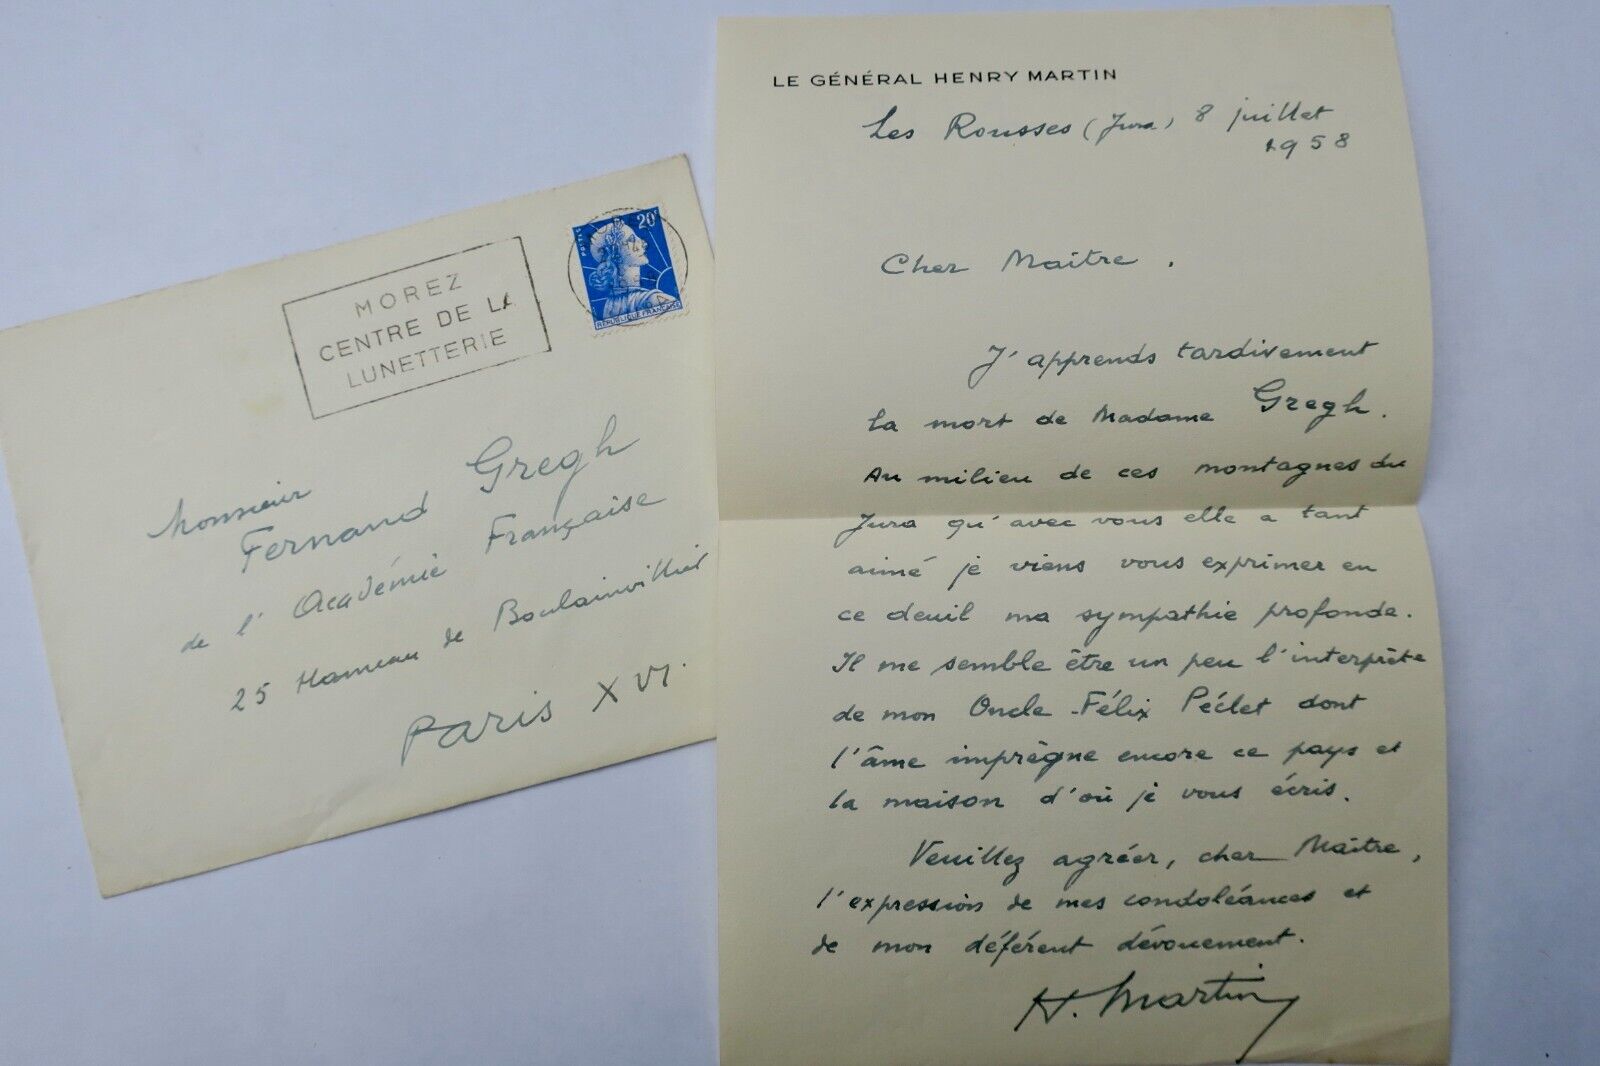 MOREZ
CENTRE DE LA
LUNETTERIE
POSTES
20F
REPUBLIQUE FRANÇAISE
Monsieur
Fernand Gregh
de l'Académie Française
25 Hameau de Boulainvilliers
Paris XVI.
LE GÉNÉRAL HENRY MARTIN
Les Rousses (Jura) 8 juillet
1958
Cher Maître.
J'apprends tardivement
la mort de Madame Gregh.
Au milieu de ces montagnes du
Jura qu'avec vous elle a tant
aimé je viens vous exprimer en
ce deuil ma sympathie profonde.
Il me semble être un peu l'interprète
de mon Oncle Félix Péclet dont
l'âme imprègne encore ce pays et
la maison d'où je vous écris.
Veuillez agréer, cher Maître,
l'expression de mes condoléances et
de mon déférent dévouement.
H. Martin